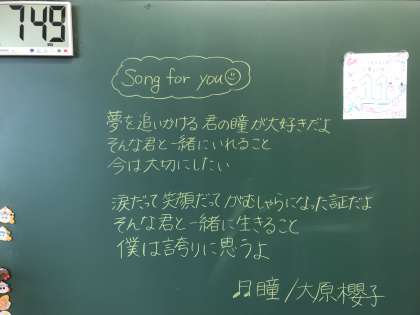 7:49
Song for you☺
11
夢を追いかける君の瞳が大好きだよ
そんな君と一緒にいれること
今は大切にしたい
涙だって笑顔だってがむしゃらになった証だよ
そんな君と一緒に生きること
僕は誇りに思うよ
♫瞳/大原櫻子